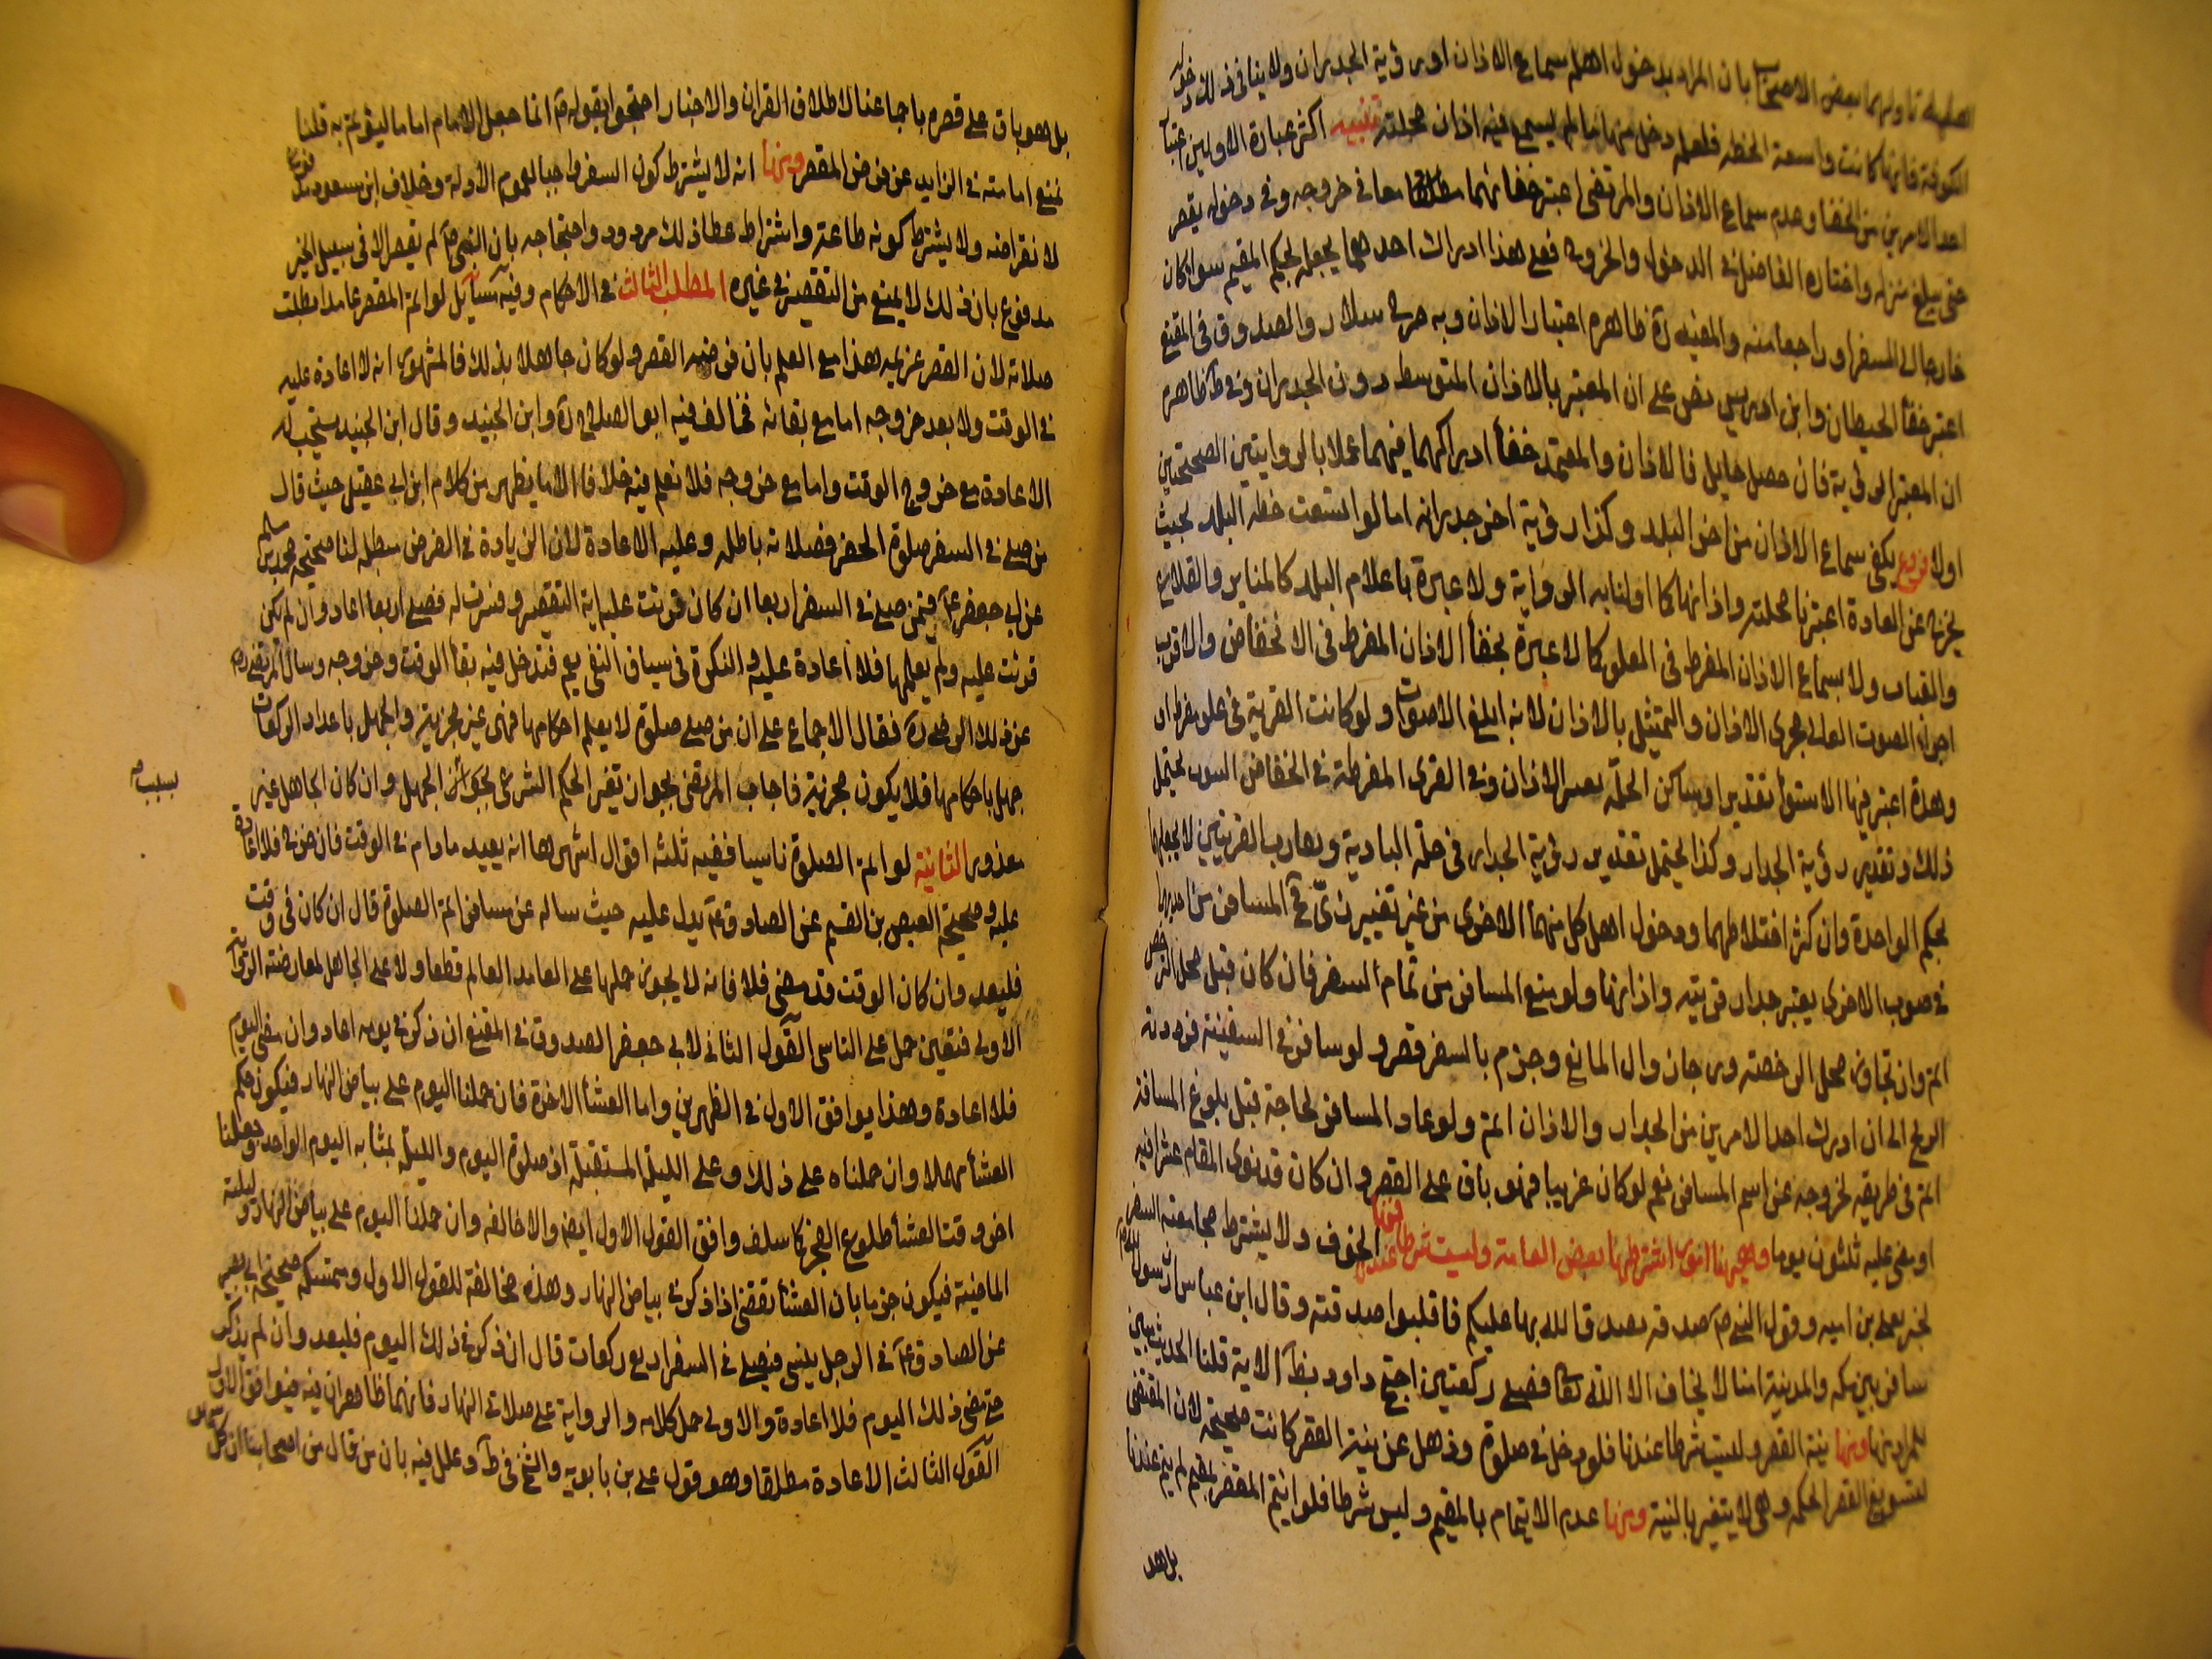 تاولهما بعض الاصحاب بان المراد بدخول اهله سماع الاذان او رؤية الجدران ولا ينافي ذلك دخوله
الكوفة فانها كانت واسعة الخطة فلعله دخل منها ما لم يسمع فيه اذان محلته تنبيه اكثر عبارة الاولين اعتبار
احد الامرين من الخفا وعدم سماع الاذان والمرتضى اعتبر خفائهما معا في خروجه وفي دخوله يقصر
حتى يبلغ منزله واختاره الفاضل في الدخول والخروج فعلى هذا ادراك احدهما يجعله بحكم المقيم سوا كان
خارجا الى السفر او راجعا منه والمفيد ره ظاهره اعتبار الاذان وبه صرح سلار والصدوق في المقنع
اعتبر خفا الحيطان وابن ادريس نص على ان المعتبر بالاذان المتوسط دون الجدران وفي ط ظاهره
ان المعتبر الرؤية فان حصل حايل فالاذان والمعتمد خفا ادراكهما فيهما عملا بالروايتين الصحيحتين
اولا فروع يكفي سماع الاذان من اخر البلد وكذا رؤية اخر جدرانه اما لو اتسعت خطة البلد بحيث
يخرج عن العادة اعتبرنا محلته واذانها كما اولنا به الرواية ولا عبرة باعلام البلد كالمناير والقلاع
والقباب ولا بسماع الاذان المفرط في العلو كما لا عبرة بخفا الاذان المفرط في الانخفاض والاقرب
اجراء الصوت العالي مجرى الاذان والتمثيل بالاذان لانه ابلغ الاصوات ولو كانت القرية في علو مفرط او
وهدة اعتبر فيها الاستوا تقديرا وساكن الحلة يعتبر الاذان وفي القرى المفرطة في الخفاض السوب يحتمل
ذلك وتقدير رؤية الجدار وكذا يحتمل تقدير رؤية الجدار في حلة البادية وتقارب القريتين لا يجعلهما
بحكم الواحدة وان كثر اختلاطهما ودخول اهل كل منهما الاخرى من غير تغيير زي فح المسافر من احديهما
في صوب الاخرى يعتبر جدار قريته واذانها ولو منع المسافر من تمام السفر فان كان قبل محل الترخص
اتم وان تجاوز محل الرخصة ورجا زوال المانع وجزم بالسفر قصر ولو سافر في السفينة فردته
الريح الى ان ادرك احد الامرين من الجدار والاذان اتم ولو عاد المسافر لحاجة قبل بلوغ المسافة
اتم في طريقه لخروجه عن اسم المسافر نعم لو كان غريبا فهو باق على القصر وان كان قد نوى المقام عشرا فيه
او مضى عليه ثلثون يوما وههنا امور اشترطها بعض العامة وليست شرطا عندنا فمنها الخوف ولا يشترط مجامعته السفر
لخبر يعلى بن اميه وقول النبي ص صدقه تصدق الله بها عليكم فاقبلوا صدقته وقال ابن عباس رسول الله ص
سافر بين مكه والمدينة امنا لا يخاف الا الله تعا فصلى ركعتين احتج داود بظ الاية قلنا الحديث مبين
للمراد منها ومنها نية القصر وليست شرطا عندنا فلو دخل في صلوة وذهل عن نية القصر كانت صحيحة لان المقتضى
لتسويغ القصر الحكمه وهي لا يتغير بالنية ومنها عدم الايتمام بالمقيم وليس شرطا فلو ايتم المقصر بمقيم لم يتم عندنا
بل هو
بل هو باق على قصره باجماعنا لاطلاق القران والاخبار احتجوا بقوله ص انما جعل الامام اماما ليؤتم به قلنا
نمنع امامته في الزايد عن فرض المقصر ومنها انه لا يشترط كون السفر واجبا لعموم الادلة وخلاف ابن مسعود مدفوع
لانقراضه ولا يشترط كونه طاعة واشتراط عطا ذلك مردود واحتجاجه بان النبي ص لم يقصر الا في سبيل الخير
مدفوع بان ذلك لا يمنع من التقصير في غيره المطلب الثالث في الاحكام وفيه مسايل لو اتم المقصر عامدا بطلت
صلاته لان القصر عزيمه هذا مع العلم بان فرضه القصر ولو كان جاهلا بذلك فالمشهور انه لا اعادة عليه
في الوقت ولا بعد خروجه اما مع بقائه فخالف فيه ابو الصلاح ره وابن الجنيد وقال ابن الجنيد يستحب له
الاعادة مع خروج الوقت واما مع خروجه فلا نعلم فيه خلافا الا ما يظهر من كلام ابن ابي عقيل حيث قال
من صلى في السفر صلوة الحضر فصلاته باطله وعليه الاعادة لان الزيادة في الفرض مبطله لنا صحيحة محمد بن مسلم
عن ابي جعفر ع فيمن صلى في السفر اربعا ان كان قرئت عليه اية التقصير وفسرت له فصلى اربعا اعاد وان لم يكن
قرئت عليه ولم يعلمها فلا اعادة عليه والنكرة في سياق النفي يعم فتدخل فيه بقا الوقت وخروجه وسال المرتضى ره
عن ذلك الرضي ره فقال الاجماع على ان من صلى صلوة لا يعلم احكامها فهي غير مجزية والجهل باعداد الركعات
جهل باحكامها فلا يكون مجزية فاجاب المرتضى بجواز تغير الحكم الشرعي بجواز الجهل وان كان الجاهل غير
بسبب
معذور الثانية لو اتم الصلوة ناسيا ففيه ثلثة اقوال اشهرها انه يعيد مادام في الوقت فان خرج فلا اعادة
عليه وصحيحة العيص بن القسم عن الصادق ع يدل عليه حيث ساله عن مسافر اتم الصلوة قال ان كان في وقت
فليعد وان كان الوقت قد مضى فلا فانه لا يجوز حملها على العامد العالم قطعا ولا على الجاهل لمعارضته الرواية
الاولى فتعين حمل على الناسي القول الثاني لابي جعفر الصدوق في المقنع ان ذكر في يومه اعاد وان مضى اليوم
فلا اعادة وهذا يوافق الاول في الظهرين واما العشا الاخرة فان حملنا اليوم على بياض النهار فيكون حكم
العشا مهملا وان حملناه على ذلك وعلى الليلة المستقبلة اذ صلوة اليوم والليلة بمثابه اليوم الواحد وجعلنا
اخر وقت العشا طلوع الفجر كما سلف وافق القول الاول ايض والا خالفه وان حملنا اليوم على بياض النهار وليلته
الماضية فيكون جزما بان العشا تقضى اذا ذكر في بياض النهار وهذه مخالفة للقول الاول ومتمسكه صحيحة ابي بصير
عن الصادق ع في الرجل ينسى فيصلي في السفر اربع ركعات قال ان ذكر في ذلك اليوم فليعد وان لم يذكر
حتى مضى ذلك اليوم فلا اعادة والاولى حمل كلامه والرواية على صلاتي النهار فانهما ظاهران فيه فيوافق الاول
القول الثالث الاعادة مطلقا وهو قول علي بن بابويه والشيخ في ط وعلل فيه بان من قال من اصحابنا ان كل